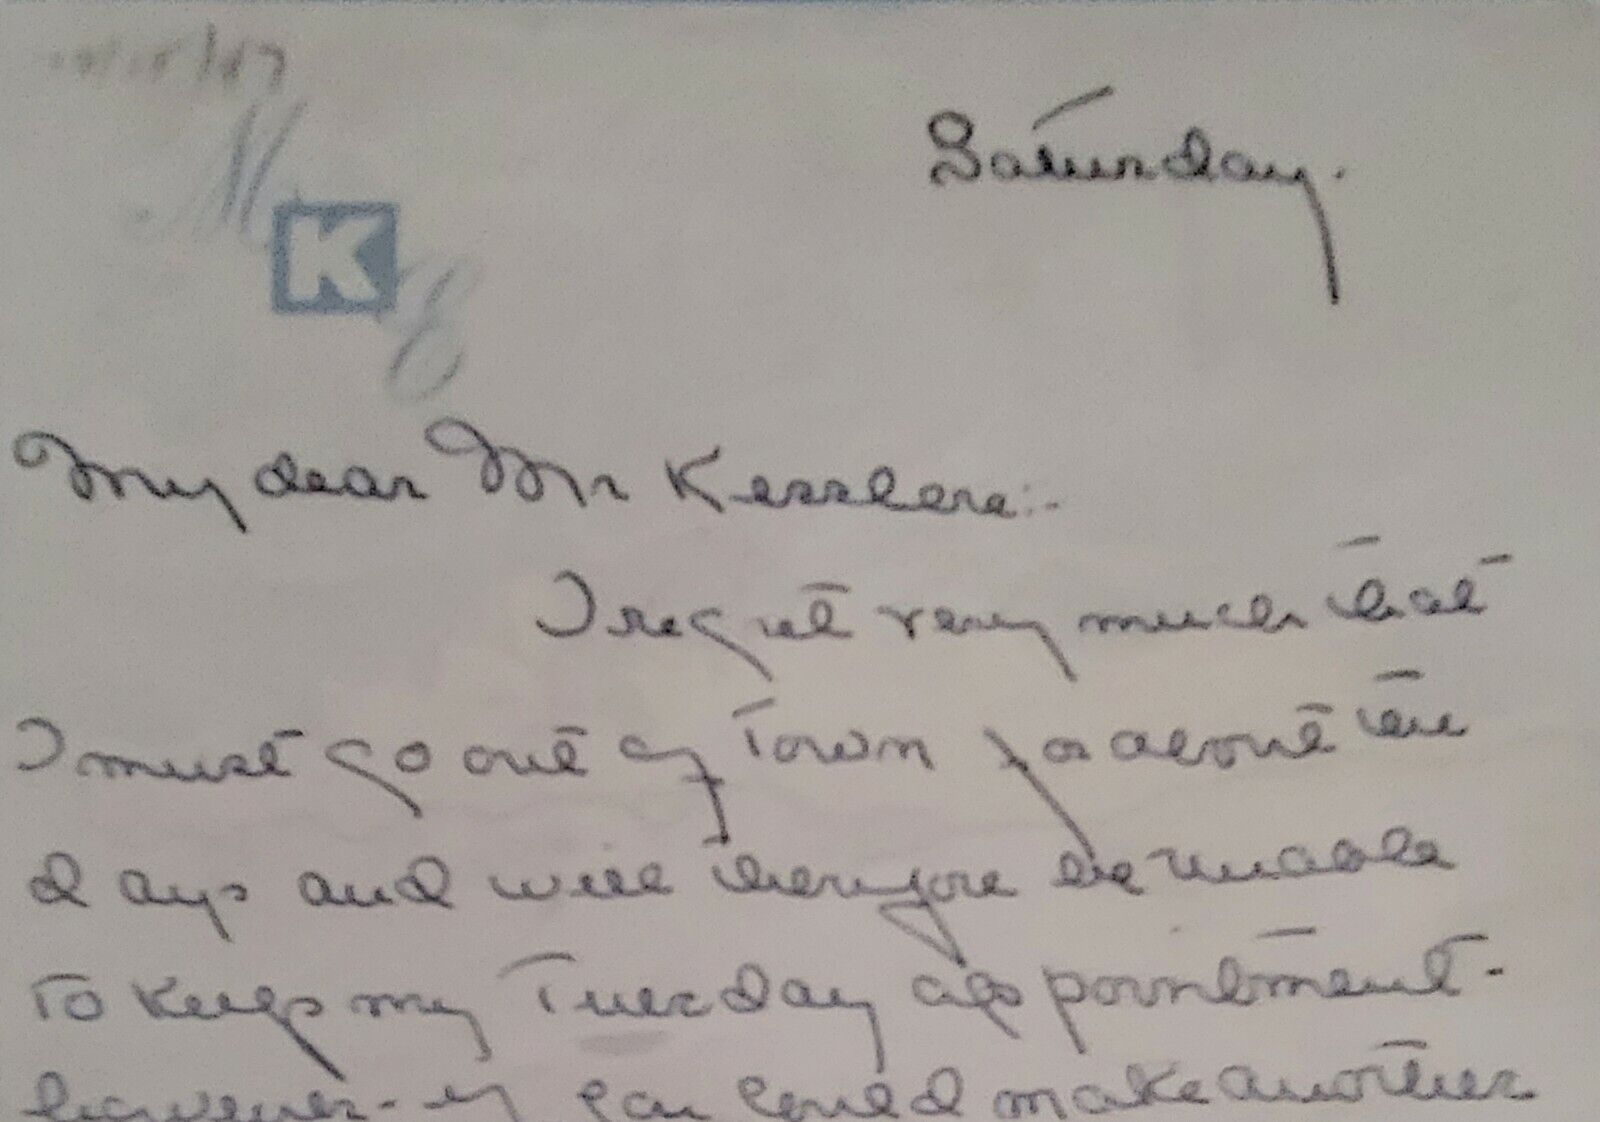 Saturday.
M
K
E
My dear Mr Kesslere:-
I regret very much that
I must go out of Town for about ten
days and will therefore be unable
To keep my Tuesday appointment -
however - if you could make another